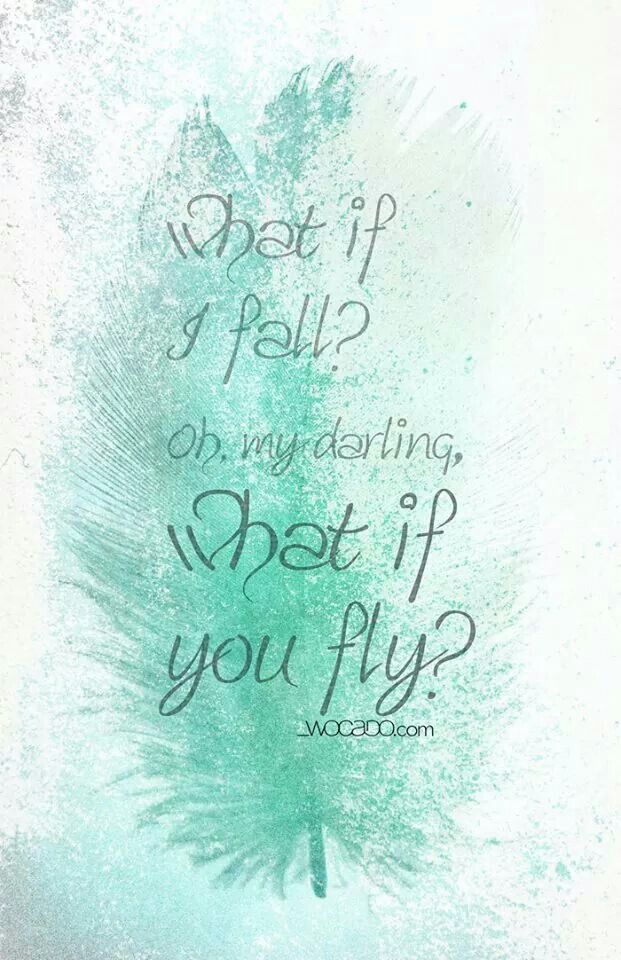 What if
I fall?
Oh, my darling,
What if
you fly?
_WOCADO.com